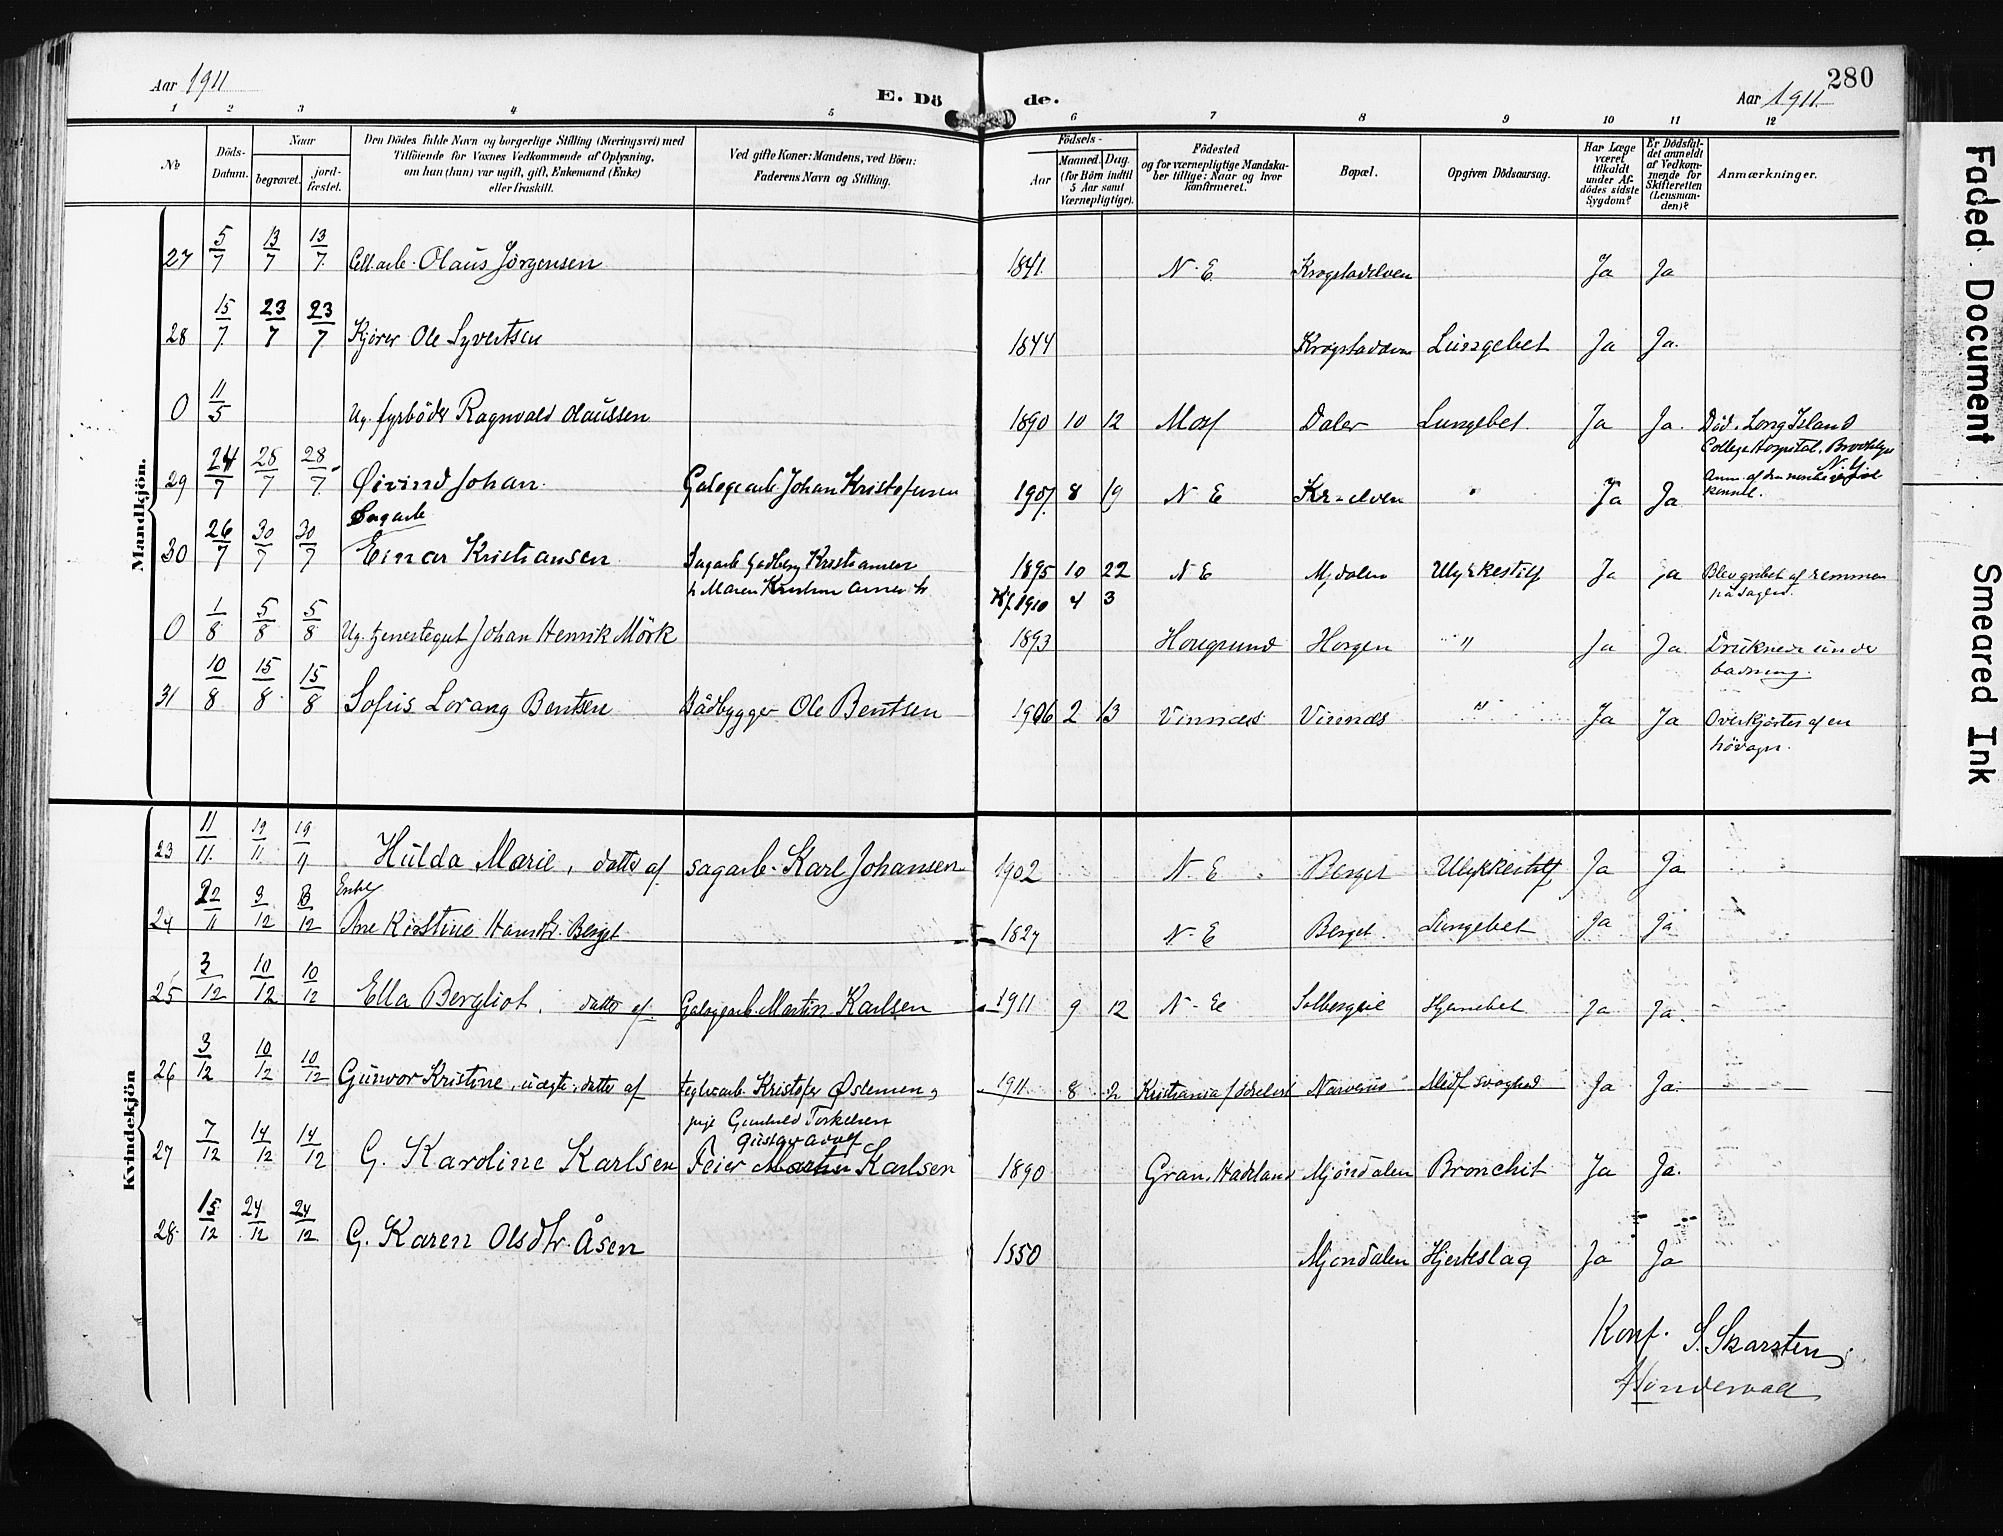 Aar 1911
E. Dö de.
Aar 1911.
280
1 2 3 4 5 6 7 8 9 10 11 12
No
Döds-Datum.
Naar
begravet.
jord-fæstet.
Den Dödes fulde Navn og borgerlige Stilling (Næringsvei) med
Tilföiende for Voxnes Vedkommende af Oplysning,
om han (hun) var ugift, gift, Enkemand (Enke)
eller fraskilt.
Ved gifte Koner: Mandens, ved Börn:
Faderens Navn og Stilling.
Födsels-
Aar
Maaned. Dag.
(for Börn indtil
5 Aar samt
Værnepligtige).
Födested
og for værnepligtige Mandska-
ber tillige: Naar og hvor
konfirmeret.
Bopæl.
Opgiven Dödsaarsag.
Har Læge
været
tilkaldt
under Af-
dödes sidste
Sygdom?
Er Dödsfal-
det anmeldt
af Vedkom-
mende for
Skifteretten
(Lensman-
den)?
Anmærkninger.
Mandkjön.
27 5/7 13/7 13/7 Cell.arb. Olaus Jörgensen 1841. N. E. Krogstadelven Ja Ja
28 15/7 23/7 23/7 Kjörer Ole Syvertsen 1844 Lungebet Ja Ja.
0 11/5 Ug. fyrböder Ragnvald Olaussen 1890 10 12 Daler Lungebet. Ja Ja. Död. Long Island
College Hospital, Brooklyn
N.Y.
29 24/7 28/7 28/7 Øivind Johan. Johan Kristofersen 1907 8 19 N E Kr-elven " Ja Ja
30 26/7 30/7 30/7 Sagarb
Einar Kristiansen Sagarb Kristiansen 1895 10 22 N E Mjdalen Ulykkestilf Ja Ja Blev grebet af remmen
på sagen.
Kf 1910 4 3
0 1/8 5/8 5/8 Ug. tjenestegut Johan Henrik Mörk 1893 Horgen " Ja Ja Druknede under
badning.
31 10/8 15/8 15/8 Sofus Lorang Bentsen Bådbygger Ole Bentsen 1906 2 13 Vinnæs Vinnæs " Ja Ja Overkjørtes af en
hövogn.
Kvindekjön
23 11/11 19/11 19/11 Hulda Marie, datter af sagarb. Karl Johansen 1902 N. E. Berget Ulykkestilf Ja Ja
24 22/11 3/12 3/12 Enke
Ane Kirstine Hansdtr. Berget 1827 N. E Berget. Lungebet Ja Ja
25 3/12 10/12 10/12 Ella Bergliot, datter af Martin Karlsen 1911 9 12 N-E Hjernebet Ja Ja.
26 3/12 10/12 10/12 Gunvor Kristine, uægte datter af teglv.arb. Kristofer 1911 8 2 Kristiania fødselsst Medf svaghed Ja Ja.
pige Gunhild Torkelsen
27 7/12 14/12 14/12 G. Karoline Karlsen Feier Martin Karlsen
Gustav Adolf
1890 Gran. Hadeland Mjöndalen Bronchit Ja Ja.
28. 15/12 24/12 24/12 G. Karen Olsdtr. Åsen 1850 Mjöndalen Hjerteslag Ja Ja
Konf. S. Skarsten
Faded Document Smeared Ink